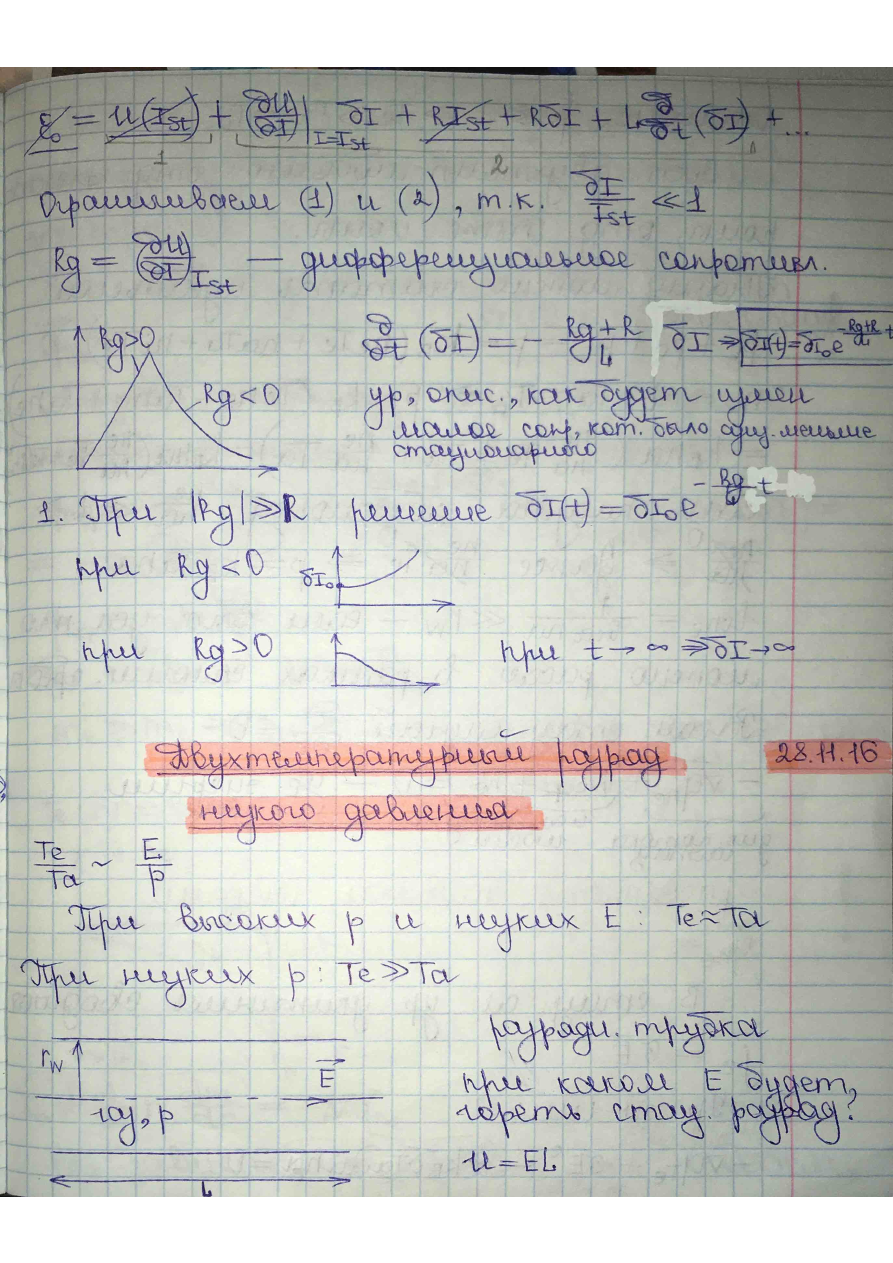 ε₀ = U(I_st) + (∂U/∂I)|_{I=I_st} δI + RI_st + RδI + L ∂/∂t (δI) + ...
1 2
Отбрасываем (1) и (2), т.к. δI/I_st ≪ 1
Rg = (∂U/∂I)_{I_st} — дифференциальное сопротивл.
Rg>0
Rg<0
∂/∂t (δI) = - (Rg+R)/L δI ⇒ δI(t) = δI₀e^{-(Rg+R)/L t}
ур, опис., как будет измен
малое сопр, кот. было меньше
стационарного
1. При |Rg| ≫ R решение δI(t) = δI₀e^{-Rg/L t}
при Rg < 0 δI₀
при Rg > 0 при t → ∞ ⇒ δI → ∞
Двухтемпературный разряд 28.11.16
низкого давления
Te/Ta ~ E/p
При высоких p и низких E : Te ≈ Ta
При низких p : Te ≫ Ta
r_W
E
газ, p
L
разрядн. трубка
при каком E будет
гореть стац. разряд?
U = EL